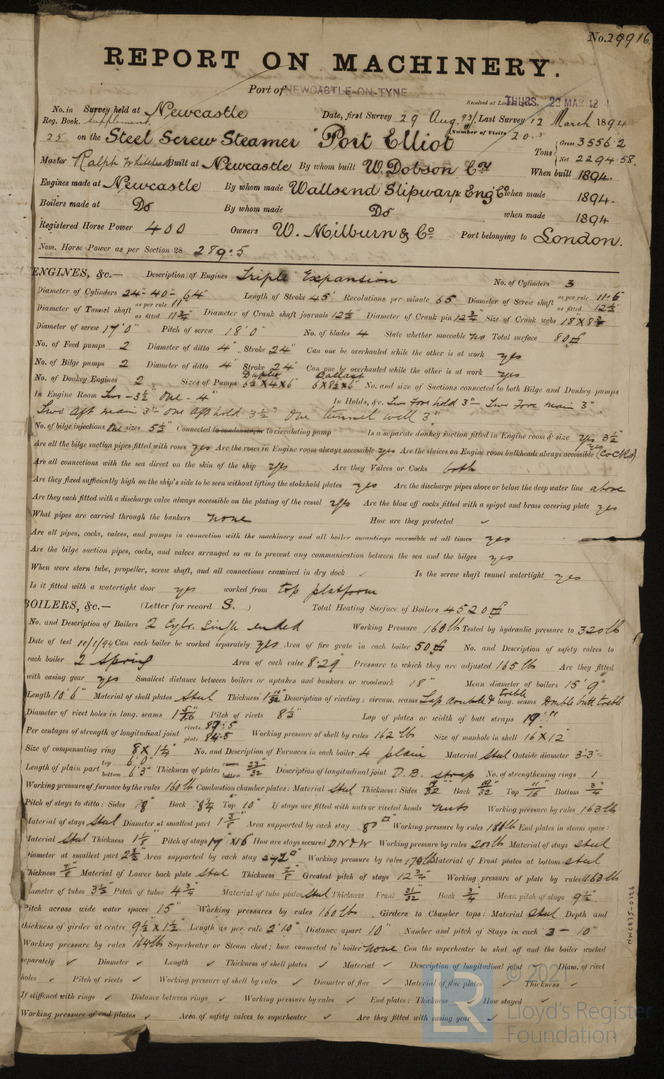 No. 29916
REPORT ON MACHINERY.
Port of NEWCASTLE-ON-TYNE
Received at THURS. 29 MAR 1894
No. in Reg. Book. Supplement Survey held at Newcastle Date, first Survey 29 Aug. 93 Last Survey 12 March 1894
(Number of Visits 20)
25 on the Steel Screw Steamer "Port Elliot Tons { Gross 3556.2 Net 2294.58.
Master Ralph Built at Newcastle By whom built W. Dobson & Coy When built 1894.
Engines made at Newcastle By whom made Wallsend Slipway & Eng Co when made 1894.
Boilers made at Do By whom made Do when made 1894
Registered Horse Power 400 Owners W. Milburn & Co Port belonging to London.
Nom. Horse Power as per Section 28 289.5
ENGINES, &c.— Description of Engines Triple Expansion No. of Cylinders 3
Diameter of Cylinders 24-40-64 Length of Stroke 45" Revolutions per minute 65 Diameter of Screw shaft as per rule 11.6 as fitted 12½
Diameter of Tunnel shaft as per rule 11 as fitted 11¾ Diameter of Crank shaft journals 12½ Diameter of Crank pin 12¾ Size of Crank webs 18 x 8¾
Diameter of screw 17'0" Pitch of screw 18'0" No. of blades 4 State whether moveable no Total surface 80
No. of Feed pumps 2 Diameter of ditto 4" Stroke 24" Can one be overhauled while the other is at work yes
No. of Bilge pumps 2 Diameter of ditto 4" Stroke 24" Can one be overhauled while the other is at work yes
No. of Donkey Engines 2 Sizes of Pumps Duplex 6½ x 4 x 6 Ballast 6 x 8½ x 6 No. and size of Suctions connected to both Bilge and Donkey pumps
In Engine Room Two-3½ One-4" In Holds, &c. Two Fore hold 3" Two Fore main 3"
Two Aft main 3" One Aft hold 3½" One tunnel well 3"
No. of bilge injections One sizes 5½ Connected to condenser, or to circulating pump Is a separate donkey suction fitted in Engine room & size yes 3½
Are all the bilge suction pipes fitted with roses yes Are the roses in Engine room always accessible yes Are the sluices on Engine room bulkheads always accessible yes (cocks)
Are all connections with the sea direct on the skin of the ship yes Are they Valves or Cocks both
Are they fixed sufficiently high on the ship's side to be seen without lifting the stokehold plates yes Are the discharge pipes above or below the deep water line above
Are they each fitted with a discharge valve always accessible on the plating of the vessel yes Are the blow off cocks fitted with a spigot and brass covering plate yes
What pipes are carried through the bunkers none How are they protected ✓
Are all pipes, cocks, valves, and pumps in connection with the machinery and all boiler mountings accessible at all times yes
Are the bilge suction pipes, cocks, and valves arranged so as to prevent any communication between the sea and the bilges yes
When were stern tube, propeller, screw shaft, and all connections examined in dry dock ✓ Is the screw shaft tunnel watertight yes
Is it fitted with a watertight door yes worked from top platform
BOILERS, &c.— (Letter for record S.) Total Heating Surface of Boilers 4520
No. and Description of Boilers 2 Cylr. Single ended Working Pressure 160 lb Tested by hydraulic pressure to 320 lb
Date of test 11/1/94 Can each boiler be worked separately yes Area of fire grate in each boiler 50 No. and Description of safety valves to
each boiler 2 Spring Area of each valve 8.29 Pressure to which they are adjusted 165 lb Are they fitted
with easing gear yes Smallest distance between boilers or uptakes and bunkers or woodwork 18" Mean diameter of boilers 15'9"
Length 10'6" Material of shell plates Steel Thickness Description of riveting: circum. seams Lap double & treble long. seams Double butt treble
Diameter of rivet holes in long. seams Pitch of rivets 8½ Lap of plates or width of butt straps 19"
Per centages of strength of longitudinal joint rivets 89.5 plates 84.5 Working pressure of shell by rules 162 lb Size of manhole in shell 16 x 12"
Size of compensating ring 8 x 1¼ No. and Description of Furnaces in each boiler 4 plain Material Steel Outside diameter 3-3
Length of plain part top 6'0" bottom 6'3" Thickness of plates Description of longitudinal joint D.B. strap No. of strengthening rings 1
Working pressure of furnace by the rules 160 lb Combustion chamber plates: Material Steel Thickness: Sides Back Top 11/16 Bottom ¾
Pitch of stays to ditto: Sides 8 Back 8¼ Top 10" If stays are fitted with nuts or riveted heads nuts Working pressure by rules 163 lb
Material of stays Steel Diameter at smallest part 1⅜ Area supported by each stay 80 Working pressure by rules 180 lb End plates in steam space:
Material Steel Thickness 1⅛" Pitch of stays 17 x 16 How are stays secured DN & W Working pressure by rules 200 lb Material of stays Steel
Diameter at smallest part 2⅜ Area supported by each stay 272 Working pressure by rules 170 lb Material of Front plates at bottom steel
Thickness Material of Lower back plate Steel Thickness Greatest pitch of stays 12¾ Working pressure of plate by rules 163 lb
Diameter of tubes 3½ Pitch of tubes 4¾ Material of tube plates Steel Thickness Front 31/32 Back ¾ Mean pitch of stays 9½
Pitch across wide water spaces 15" Working pressures by rules 160 lb Girders to Chamber tops: Material Steel Depth and
thickness of girder at centre 9½ x 1½ Length as per rule 2'10" Distance apart 10" Number and pitch of Stays in each 3-10"
Working pressure by rules 164 lb Superheater or Steam chest; how connected to boiler none Can the superheater be shut off and the boiler worked
separately ✓ Diameter ✓ Length ✓ Thickness of shell plates ✓ Material ✓ Description of longitudinal joint ✓ Diam. of rivet
holes ✓ Pitch of rivets ✓ Working pressure of shell by rules ✓ Diameter of flue ✓ Material of flue plates ✓ Thickness
If stiffened with rings ✓ Distance between rings ✓ Working pressure by rules ✓ End plates: Thickness ✓ How stayed ✓
Working pressure of end plates ✓ Area of safety valves to superheater ✓ Are they fitted with easing gear ✓
NWC835-0126
© 2021
LR
Lloyd's Register
Foundation